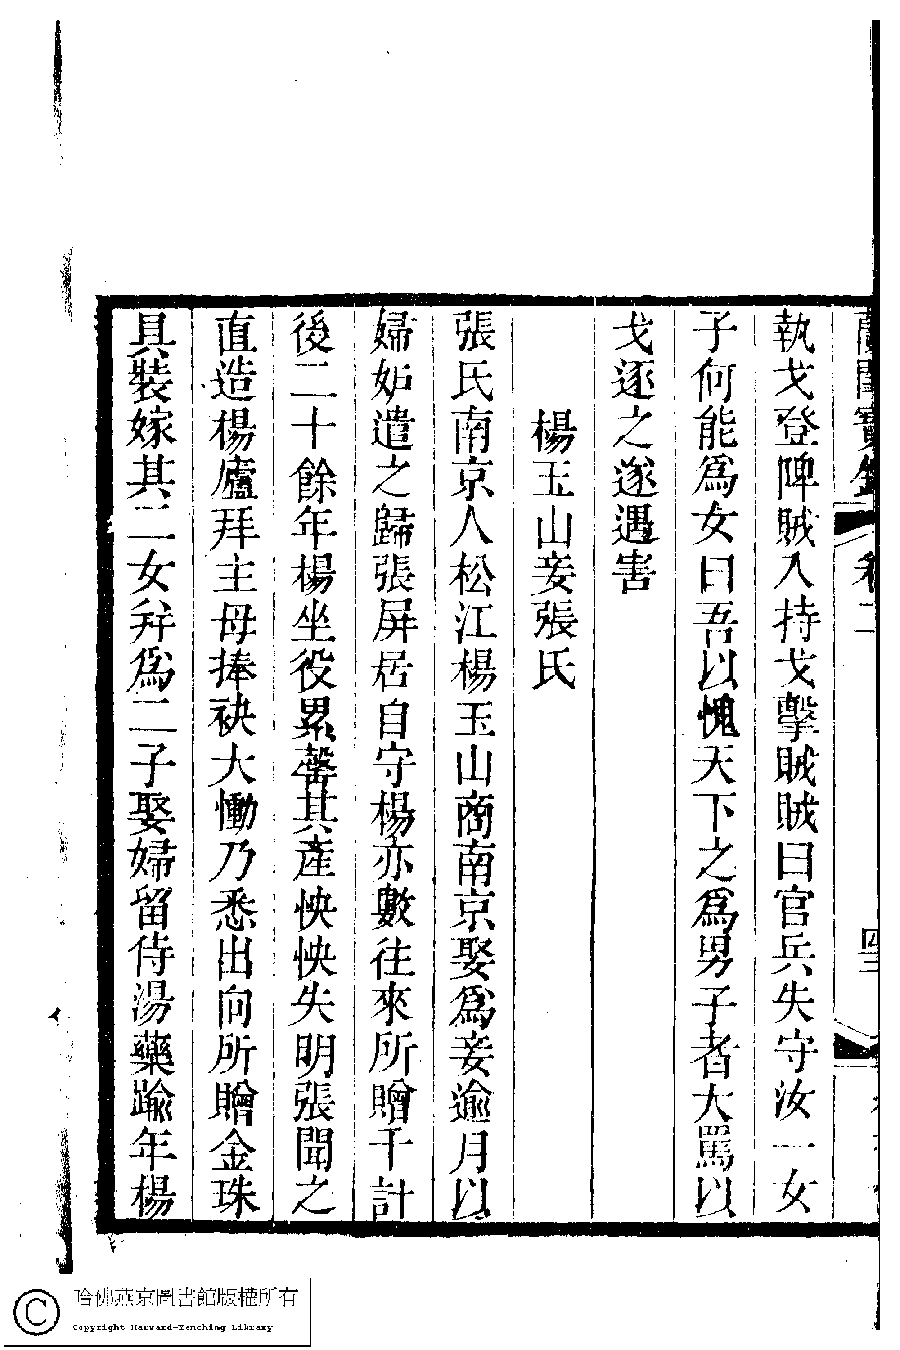 蘭閨寶錄 卷二 四三
執戈登陴賊入持戈擊賊賊曰官兵失守汝一女
子何能為女曰吾以愧天下之為男子者大罵以
戈逐之遂遇害
楊玉山妾張氏
張氏南京人松江楊玉山商南京娶為妾逾月以
婦妬遣之歸張屏居自守楊亦數往來所贈千計
後二十餘年楊坐役累罄其產怏怏失明張聞之
直造楊廬拜主母捧袂大慟乃悉出向所贈金珠
具裝嫁其二女并為二子娶婦留侍湯藥踰年楊
哈佛燕京圖書館版權所有
Copyright Harvard-Yenching Library